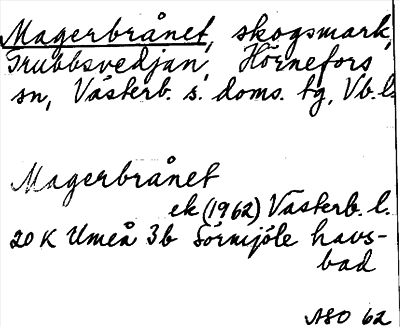 Magerbrånet, skogsmark,
Trubbsvedjan, Hörnefors
sn, Västerb. s. doms. tg, Vb. l.
Magerbrånet
ek (1962) Västerb. l.
20 K Umeå 3b Sörmjöle havs-
bad
ASO 62